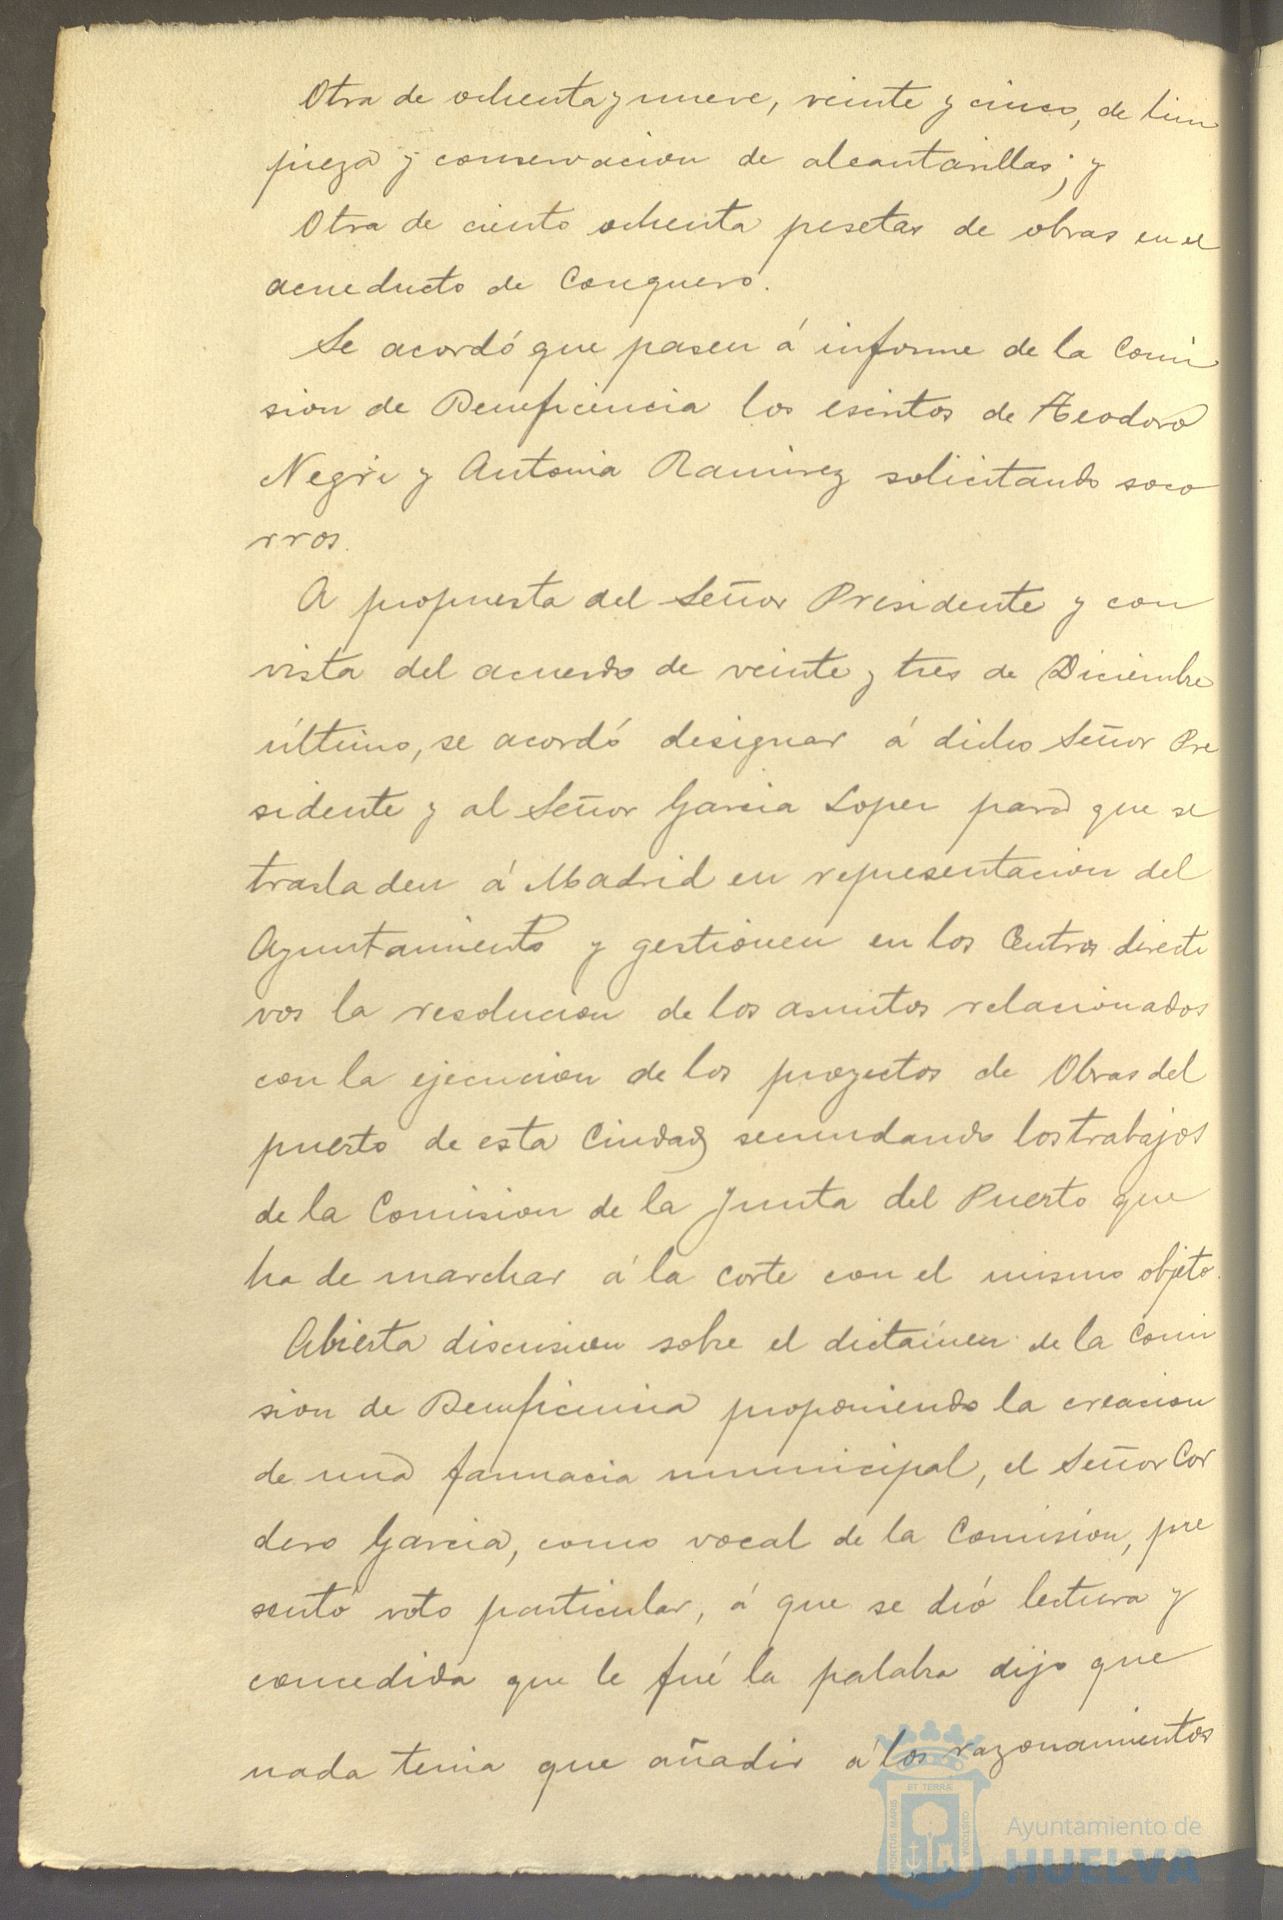 Otra de ochenta y nueve, veinte y cinco, de lim
pieza y conservacion de alcantarillas; y
Otra de ciento ochenta pesetas de obras en el
acueducto de Conquero.
Se acordó que pasen á informe de la Comi
sion de Beneficencia los escritos de Teodoro
Negri y Antonia Ramirez solicitando soco
rros.
A propuesta del Señor Presidente y con
vista del acuerdo de veinte y tres de Diciembre
último, se acordó designar á dicho Señor Pre
sidente y al Señor Garcia Lopez para que se
trasladen á Madrid en representacion del
Ayuntamiento y gestionen en los Centros directi
vos la resolucion de los asuntos relacionados
con la ejecucion de los proyectos de Obras del
puerto de esta Ciudad secundando los trabajos
de la Comision de la Junta del Puerto que
ha de marchar á la corte con el mismo objeto.
Abierta discusion sobre el dictámen de la Comi
sion de Beneficencia proponiendo la creacion
de una farmacia municipal, el Señor Cor
dero Garcia, como vocal de la Comision, pre
sentó voto particular, á que se dió lectura y
concedida que le fué la palabra dijo que
nada tenia que añadir á los razonamientos
PORTUS MARIS
ET TERRÆ
CUSTODIA
Ayuntamiento de
HUELVA